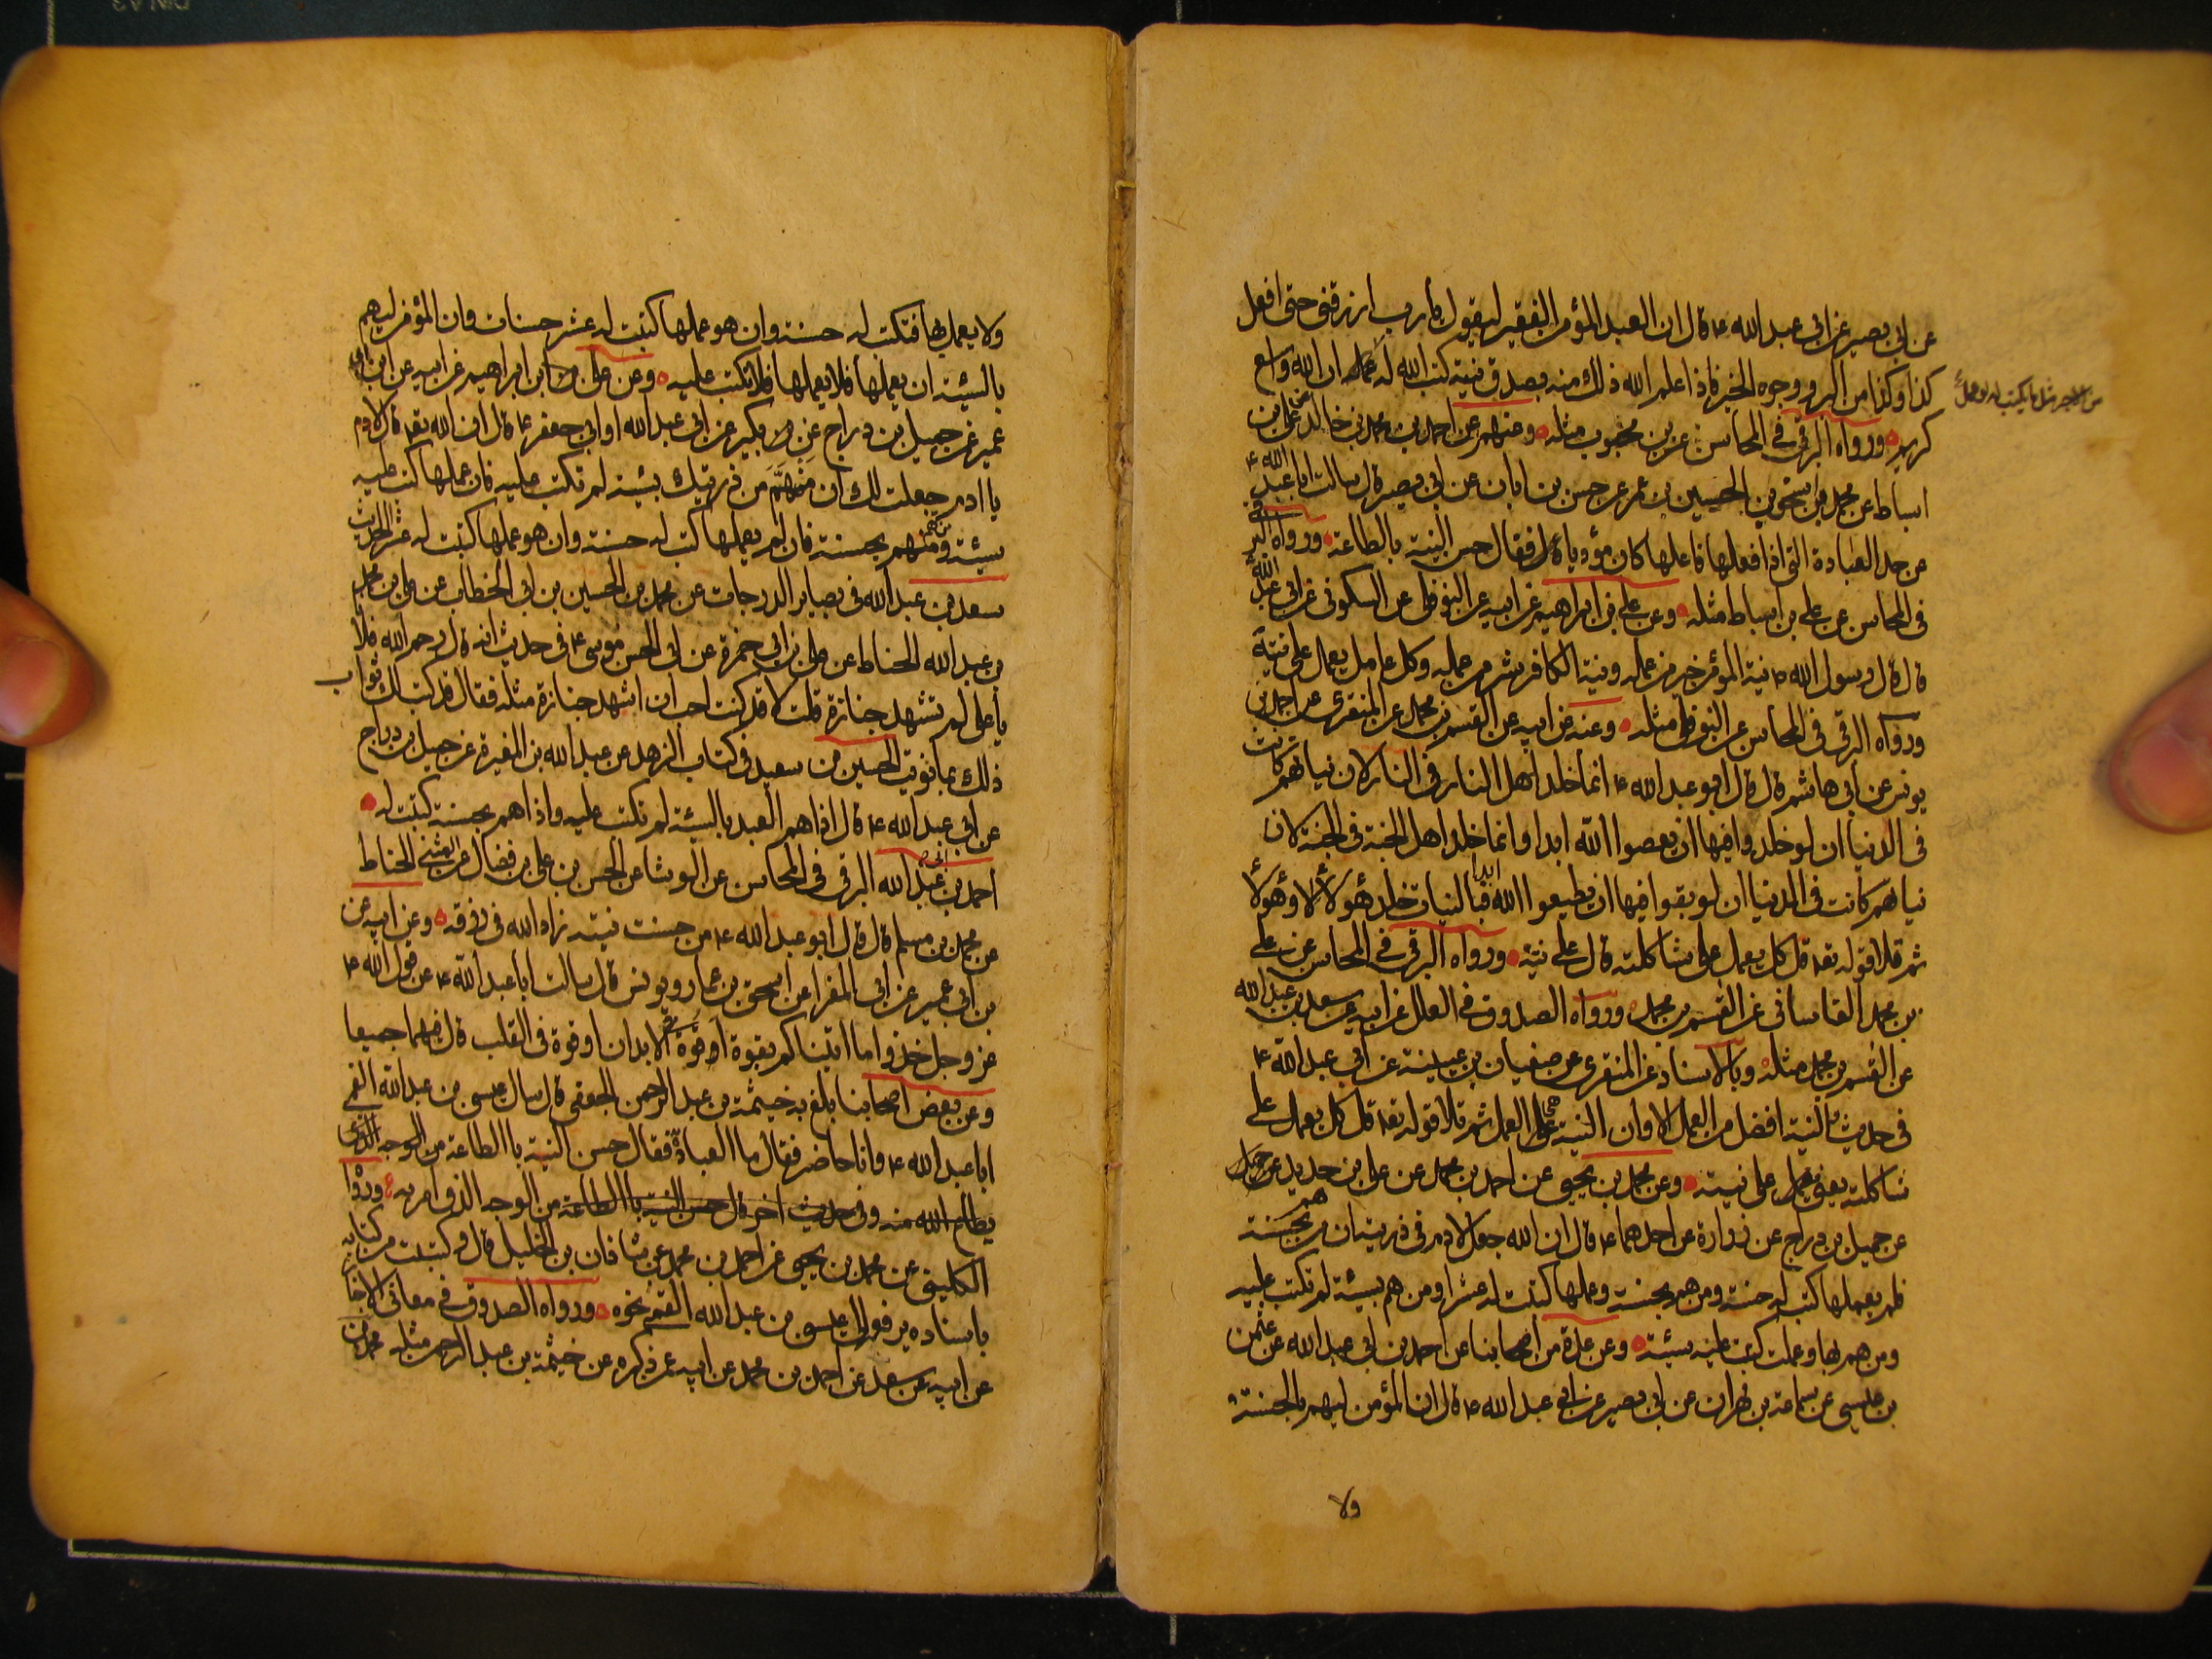 عن ابى بصير عن ابى عبد الله ع قال ان العبد المؤمن الفقير ليقول يا رب ارزقنى حتى افعل
كذا وكذا من البر ووجوه الخير فاذا علم الله ذلك منه بصدق نيته كتب الله له ان الله واسع
كريم ورواه البرقى فى المحاسن عن بن محبوب مثله وعنهم عن احمد بن محمد بن خالد عن على بن
اسباط عن محمد بن اسحق بن الحسين بن عمرو عن حسن بن ابان عن ابى بصير قال سالت ابا عبد الله ع
عن حد العبادة التى اذا فعلها فاعلها كان مؤديا فقال حسن النية بالطاعة ورواه البرقى
فى المحاسن عن على بن اسباط مثله وعن على بن ابراهيم عن ابيه عن النوفلى عن السكونى عن ابى عبد الله
قال قال رسول الله ص نية المؤمن خير من عمله ونية الكافر شر من عمله وكل عامل يعمل على نيته
ورواه البرقى فى المحاسن عن النوفلى مثله وعنه عن ابيه عن القسم بن محمد عن المنقرى عن احمد بن
يونس عن ابى هاشم قال قال ابو عبد الله ع انما خلد اهل النار فى النار لان نياتهم كانت
فى الدنيا ان لو خلدوا فيها ان يعصوا الله ابدا وانما خلد اهل الجنة فى الجنة لان
نياتهم كانت فى الدنيا ان لو بقوا فيها ان يطيعوا الله ابدا فبالنيات خلد هؤلاء وهؤلاء
ثم تلا قوله تعه قل كل يعمل على شاكلته قال على نيته ورواه البرقى فى المحاسن عن على
بن محمد القاسانى عن القسم بن محمد ورواه الصدوق فى العلل عن ابيه عن سعد بن عبد الله
عن القسم بن محمد مثله وبالاسناد عن المنقرى عن صفيان بن عيينة عن ابى عبد الله ع
فى حديث النية افضل من العمل الا وان النية هى العمل ثم تلا قوله تعه قل كل يعمل على
شاكلته يعنى على نيته وعن محمد بن يحيى عن احمد بن محمد عن على بن حديد عن جميل
عن جميل بن دراج عن زرارة عن احدهما ع قال ان الله جعل لادم فى ذريته ان من هم بحسنة
فلم يعملها كتب له حسنة ومن هم بحسنة وعملها كتبت له عشرا ومن هم بسيئة لم تكتب عليه
ومن هم بها وعملت كتبت عليه سيئة وعن عدة من اصحابنا عن احمد بن ابى عبد الله عن عثمن
بن عيسى عن سماعة بن مهران عن ابى بصير عن ابى عبد الله ع قال ان المؤمن ليهم بالحسنة
ولا
ولا يعمل بها فتكتب له حسنة وان هو عملها كتبت له عشر حسنات وان المؤمن ليهم
بالسيئة ان يعملها فلا يعملها فلا تكتب عليه وعن على بن ابراهيم عن ابيه عن ابن ابى
عمير عن جميل بن دراج عن بكير عن ابى عبد الله او ابى جعفر ع قال ان الله تعه قال لادم
يا ادم جعلت لك ان من هم من ذريتك بسيئة لم تكتب عليه فان عملها كتبت عليه
سيئة ومن هم منهم بحسنة فان لم يعملها كتبت له حسنة وان هو عملها كتبت له عشر الحديث
سعد بن عبد الله فى بصاير الدرجات عن محمد بن الحسين بن ابى الخطاب عن على بن محمد
بن عبد الله الحناط عن على بن ابى حمزة عن ابى الحسن موسى ع فى حديث انه قال رحم الله فلانا
يا على لم تشهد جنازة قلت لا قد كنت احب ان اشهد جنازة مثله فقال قد كتب لك ثواب
ذلك بما نويت الحسين بن سعيد فى كتاب الزهد عن عبد الله بن المغيرة عن جميل بن دراج
عن ابى عبد الله ع قال اذا هم العبد بالسيئة لم تكتب عليه واذا هم بحسنة كتبت له
احمد بن ابى عبد الله البرقى فى المحاسن عن الوشا عن الحسن بن على بن فضال عن المثنى الحناط
عن محمد بن مسلم قال قال ابو عبد الله ع من حسنت نيته زاد الله فى رزقه وعن ابيه عن
بن ابى عمير عن ابى المغرا عن اسحق بن عمار ويونس قال سالت ابا عبد الله ع عن قول الله ع
عز وجل خذوا ما اتيناكم بقوة اقوة فى الابدان او قوة فى القلب قال فيهما جميعا
وعن بعض اصحابنا بلغ به خيثمة بن عبد الرحمن الجعفى قال سال عيسى بن عبد الله القمى
ابا عبد الله ع وانا حاضر فقال ما العبادة فقال حسن النية بالطاعة من الوجه الذى
يطاع الله منه وفى حديث اخر قال حسن النية بالطاعة من الوجه الذى امر به ورواه
الكلينى عن محمد بن يحيى عن احمد بن محمد عن شاذان بن الخليل قال وكتبت من كتابه
باسناده يرفعه الى عيسى بن عبد الله القمى نحوه ورواه الصدوق فى معانى الاخبار
عن ابيه عن سعد عن احمد بن محمد عن ابيه عمن ذكره عن خيثمة بن عبد الرحمن مثله محمد بن